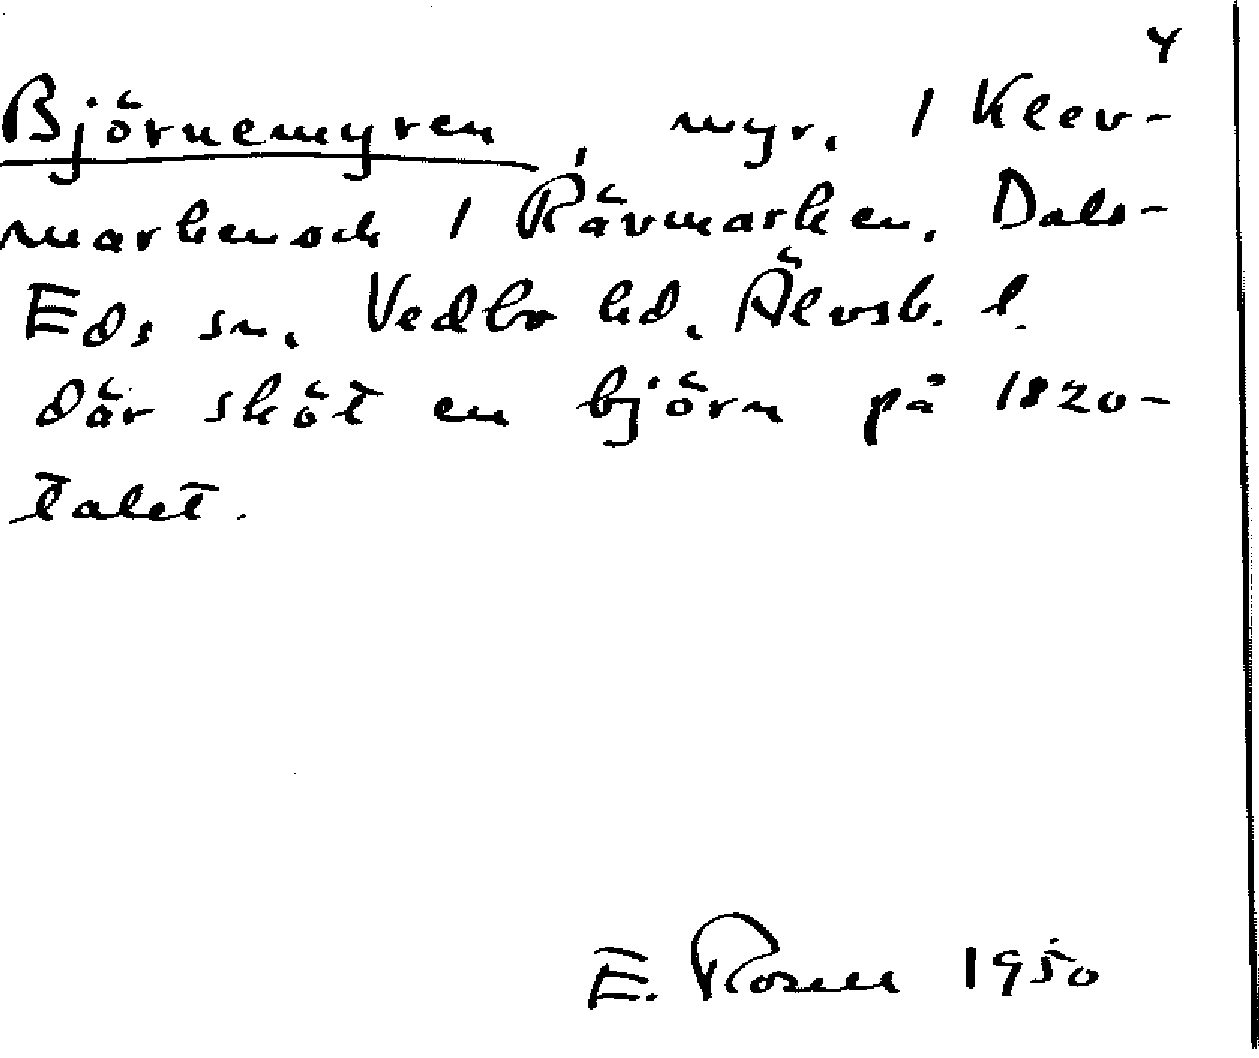 4
Björnemyren, myr, 1 Klev-
marken och 1 Rävmarken. Dals-
Eds sn. Vedbo hd. Älvsb. l.
där sköt en björn på 1820-
talet.
E. Rosell 1950